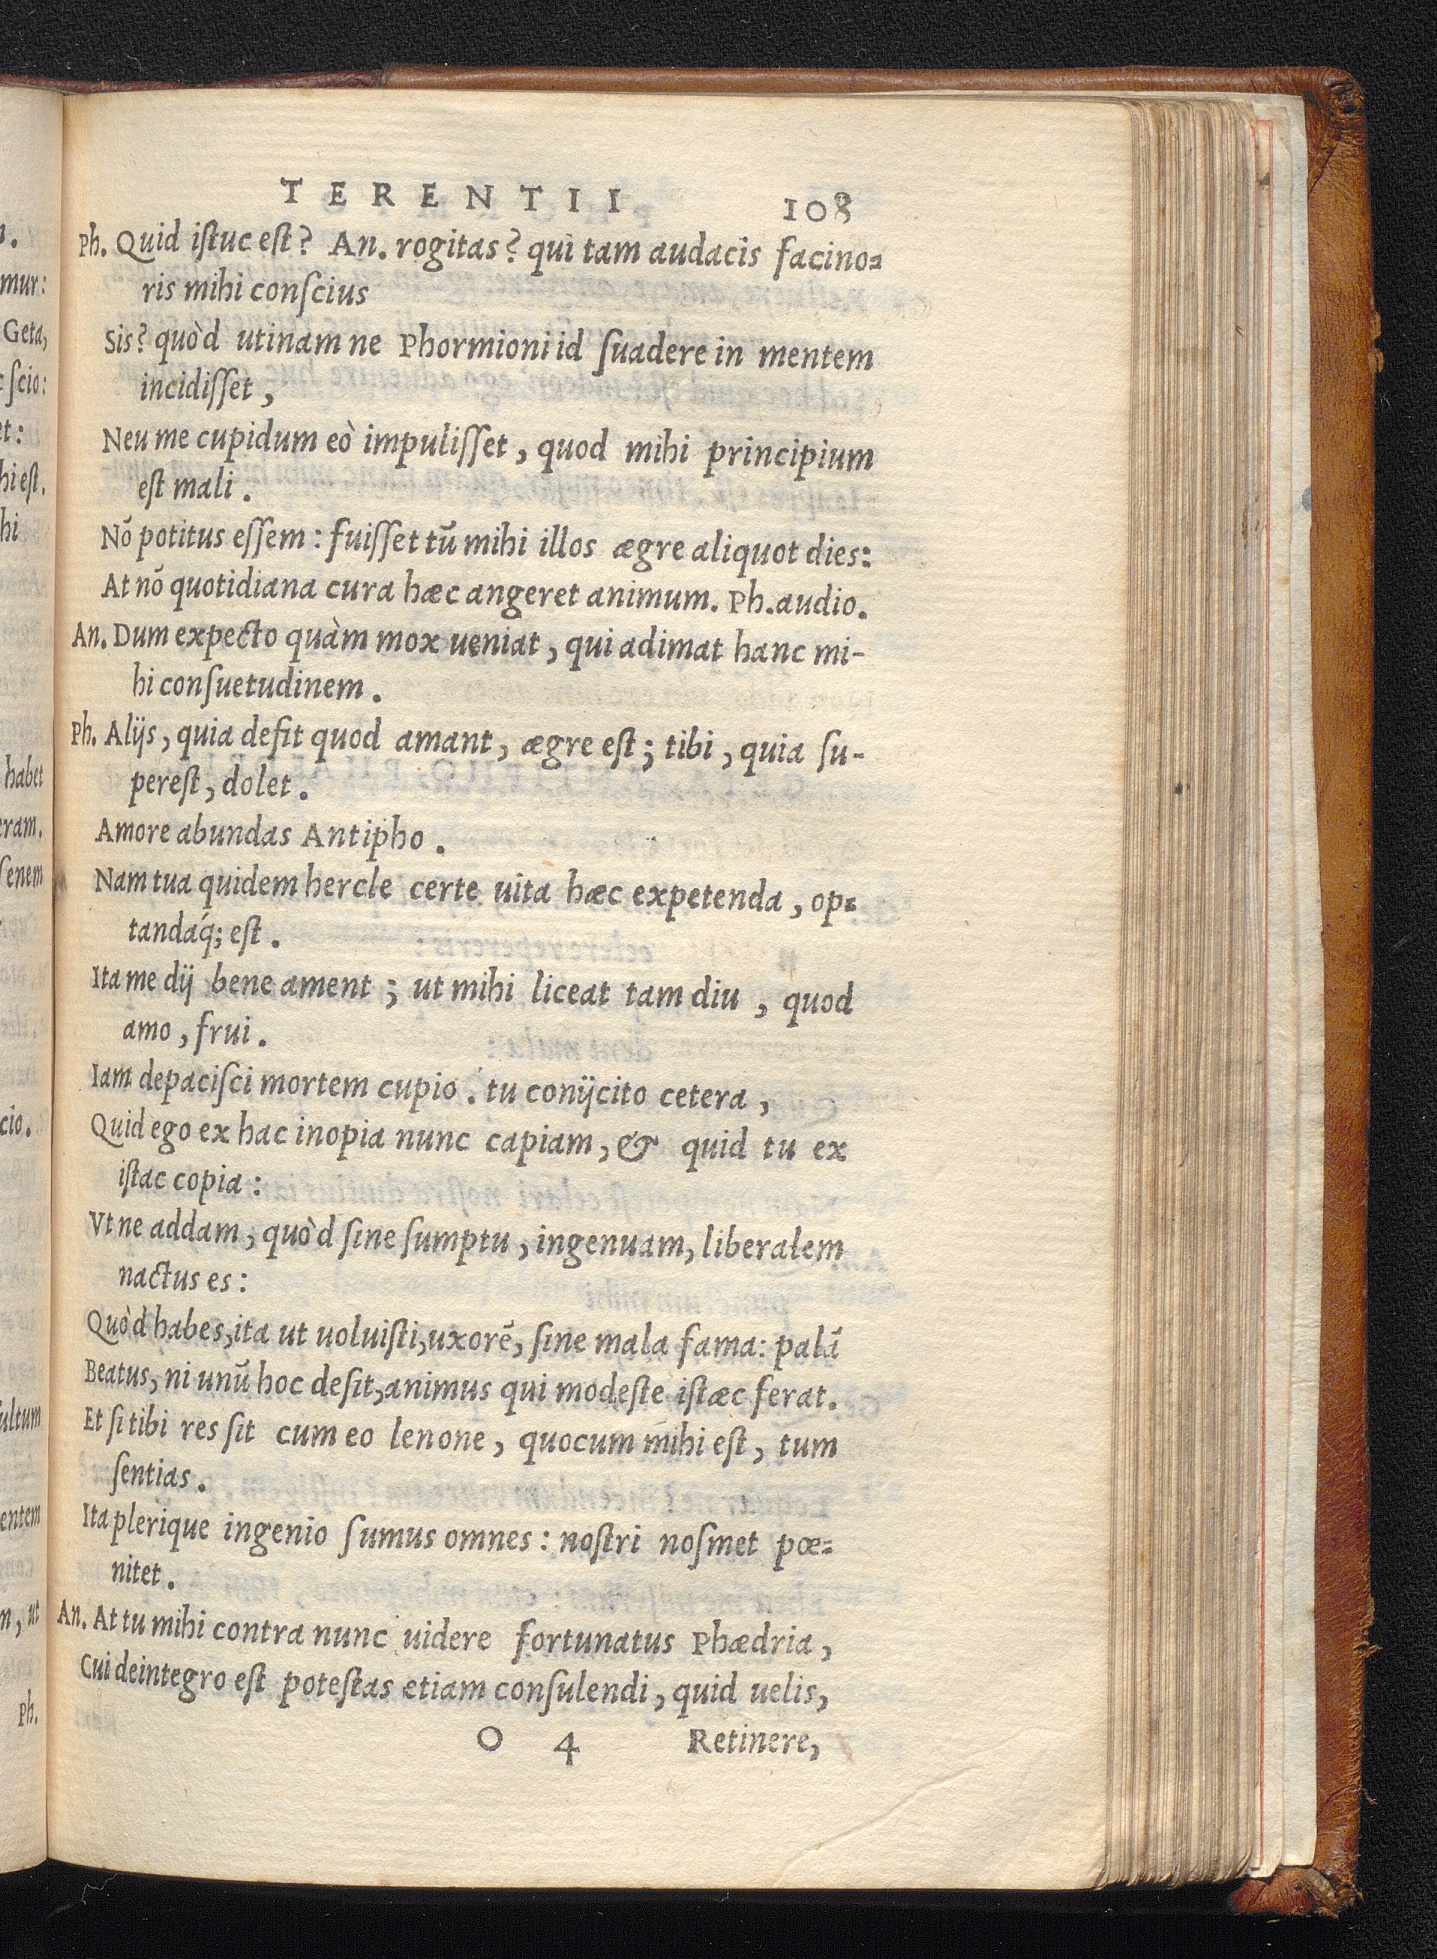 TERENTII 108
Ph. Quid iſtuc eſt? An. rogitas? qui tam audacis facino⸗
ris mihi conſcius
Sis? quòd utinam ne Phormioni id ſuadere in mentem
incidiſſet,
Neu me cupidum eò impuliſſet, quod mihi principium
eſt mali.
Nō potitus eſſem: fuiſſet tū mihi illos ægre aliquot dies:
At nō quotidiana cura hæc angeret animum. Ph. audio.
An. Dum expecto quàm mox ueniat, qui adimat hanc mi-
hi conſuetudinem.
Ph. Alijs, quia deſit quod amant, ægre eſt; tibi, quia ſu-
pereſt, dolet.
Amore abundas Antipho.
Nam tua quidem hercle certe uita hæc expetenda, op⸗
tandaq́; eſt.
Ita me dij bene ament; ut mihi liceat tam diu, quod
amo, frui.
Iam depaciſci mortem cupio. tu conijcito cetera,
Quid ego ex hac inopia nunc capiam, & quid tu ex
iſtac copia:
Vt ne addam, quòd ſine ſumptu, ingenuam, liberalem
nactus es:
Quòd habes, ita ut uoluiſti, uxorē, ſine mala fama: palā
Beatus, ni unū hoc deſit, animus qui modeſte iſtæc ferat.
Et ſi tibi res ſit cum eo lenone, quocum mihi eſt, tum
ſentias.
Ita plerique ingenio ſumus omnes: noſtri noſmet pœ⸗
nitet.
An. At tu mihi contra nunc uidere fortunatus Phædria,
Cui deintegro eſt poteſtas etiam conſulendi, quid uelis,
O 4 Retinere,
mur:
Geta,
ſcio:
et:
hi eſt.
hi
habet
eram.
ſenem
cio.
ultum
entem
n, ut
Ph.